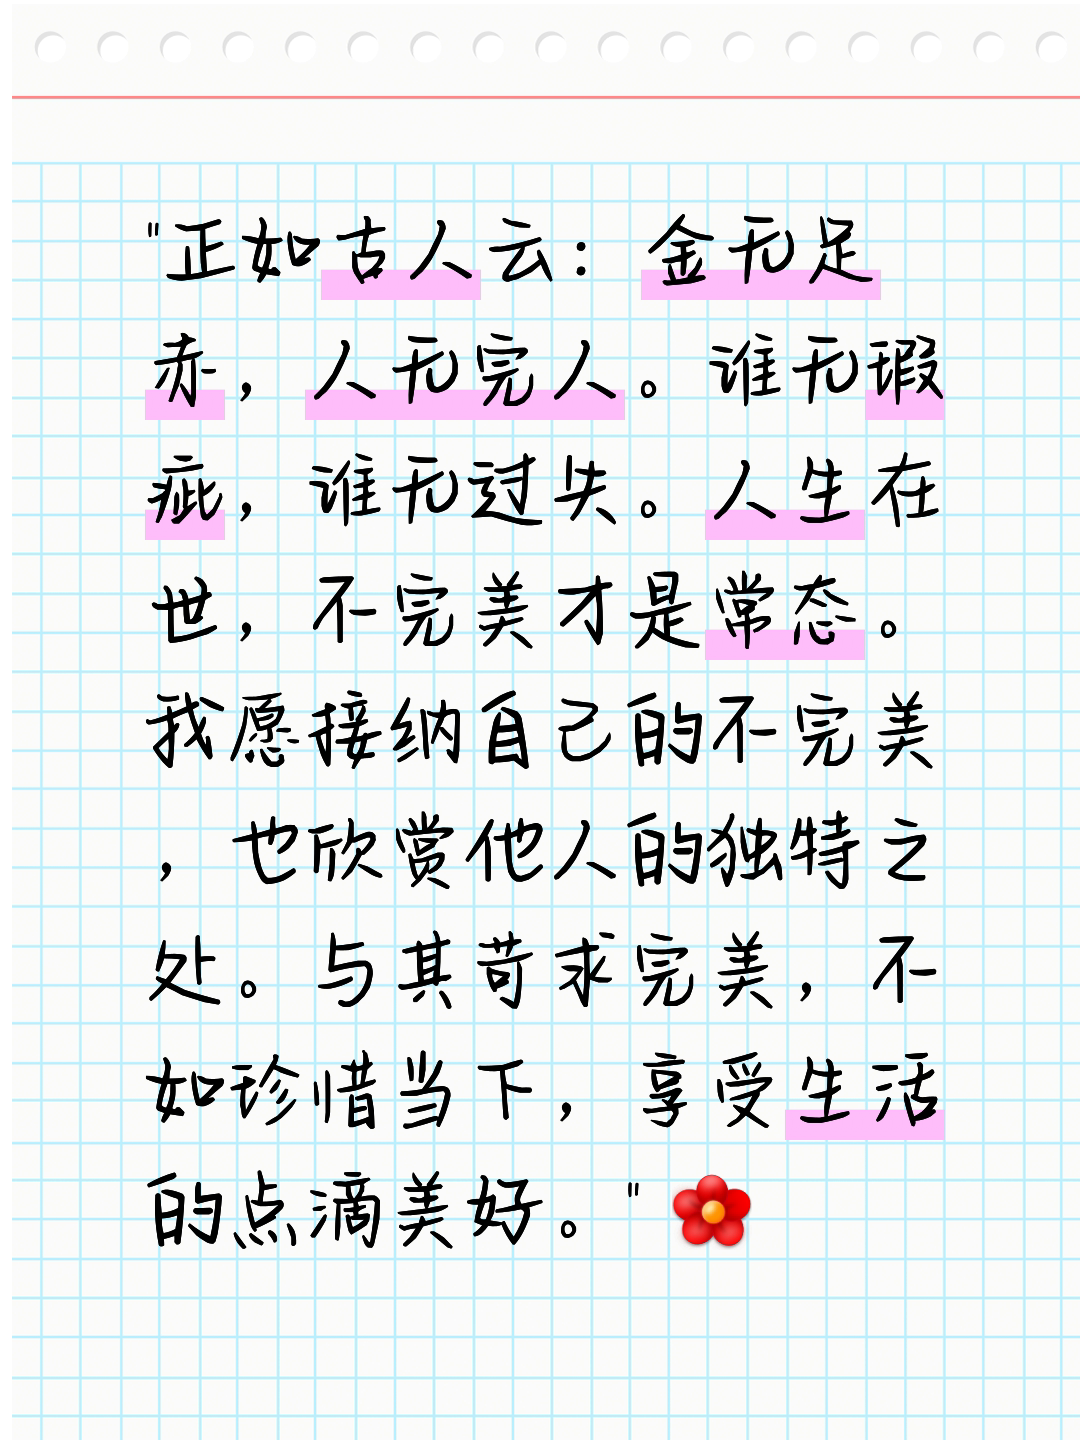 "正如古人云：金无足
赤，人无完人。谁无瑕
疵，谁无过失。人生在
世，不完美才是常态。
我愿接纳自己的不完美
，也欣赏他人的独特之
处。与其苛求完美，不
如珍惜当下，享受生活
的点滴美好。"